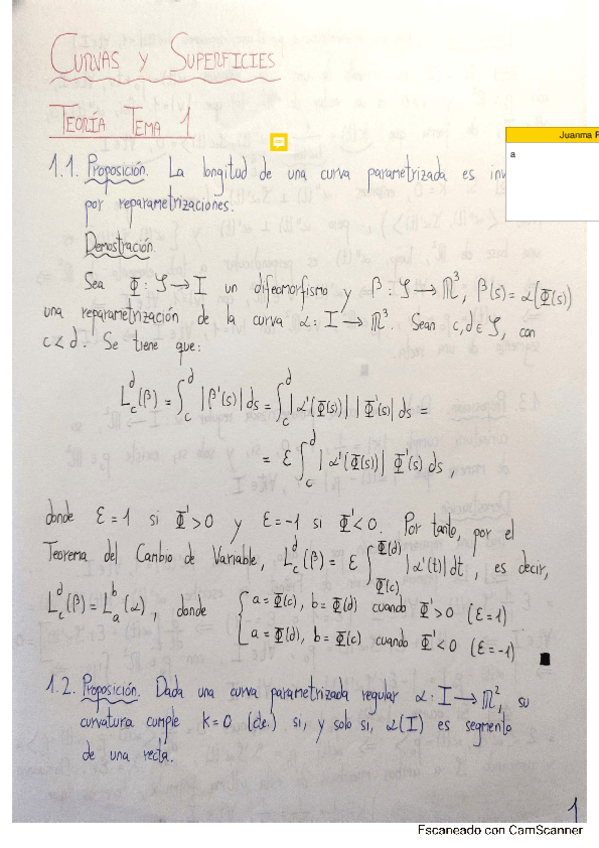 CURVAS Y SUPERFICIES
TEORÍA TEMA 1
Juanma
a
1.1. Proposición. La longitud de una curva parametrizada es
por reparametrizaciones.
Demostración.
Sea Φ: ζ → I un difeomorfismo y β: ζ → ℝ³, β(s) = α(Φ(s))
una reparametrización de la curva α: I → ℝ³. Sean c, d ∈ ζ, con
c < d. Se tiene que:
L_c^d(β) = ∫_c^d |β'(s)| ds = ∫_c^d |α'(Φ(s))| |Φ'(s)| ds =
= ε ∫_c^d |α'(Φ(s))| Φ'(s) ds,
donde ε = 1 si Φ' > 0 y ε = -1 si Φ' < 0. Por tanto, por el
Teorema del Cambio de Variable, L_c^d(β) = ε ∫_{Φ(c)}^{Φ(d)} |α'(t)| dt, es decir,
L_c^d(β) = L_a^b(α), donde { a = Φ(c), b = Φ(d) cuando Φ' > 0 (ε = 1)
a = Φ(d), b = Φ(c) cuando Φ' < 0 (ε = -1) ■
1.2. Proposición. Dada una curva parametrizada regular α: I → ℝ², su
curvatura cumple K = 0 (cte.) si, y solo si, α(I) es segmento
de una recta.
1
Escaneado con CamScanner